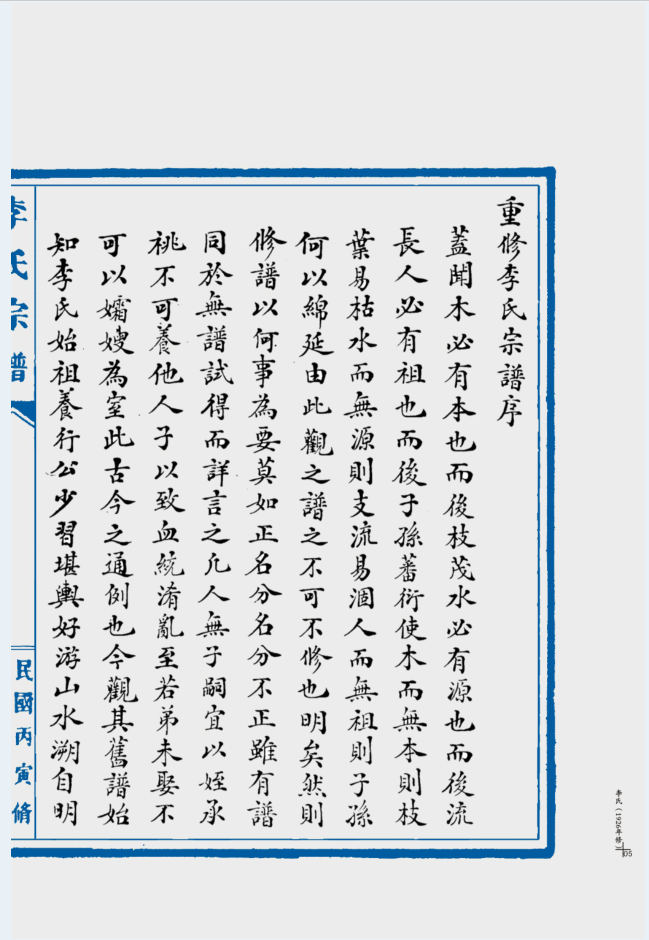 重修李氏宗譜序
蓋聞木必有本也而後枝茂水必有源也而後流
長人必有祖也而後子孫蕃衍使木而無本則枝
葉易枯水而無源則支流易涸人而無祖則子孫
何以綿延由此觀之譜之不可不修也明矣然則
修譜以何事為要莫如正名分名分不正雖有譜
同於無譜試得而詳言之凡人無子嗣宜以姪承
祧不可養他人子以致血統淆亂至若弟未娶不
可以孀嫂為室此古今之通例也今觀其舊譜始
知李氏始祖養行公少習堪輿好游山水溯自明
李氏宗譜
民國丙寅脩
李氏（1926年修）
05